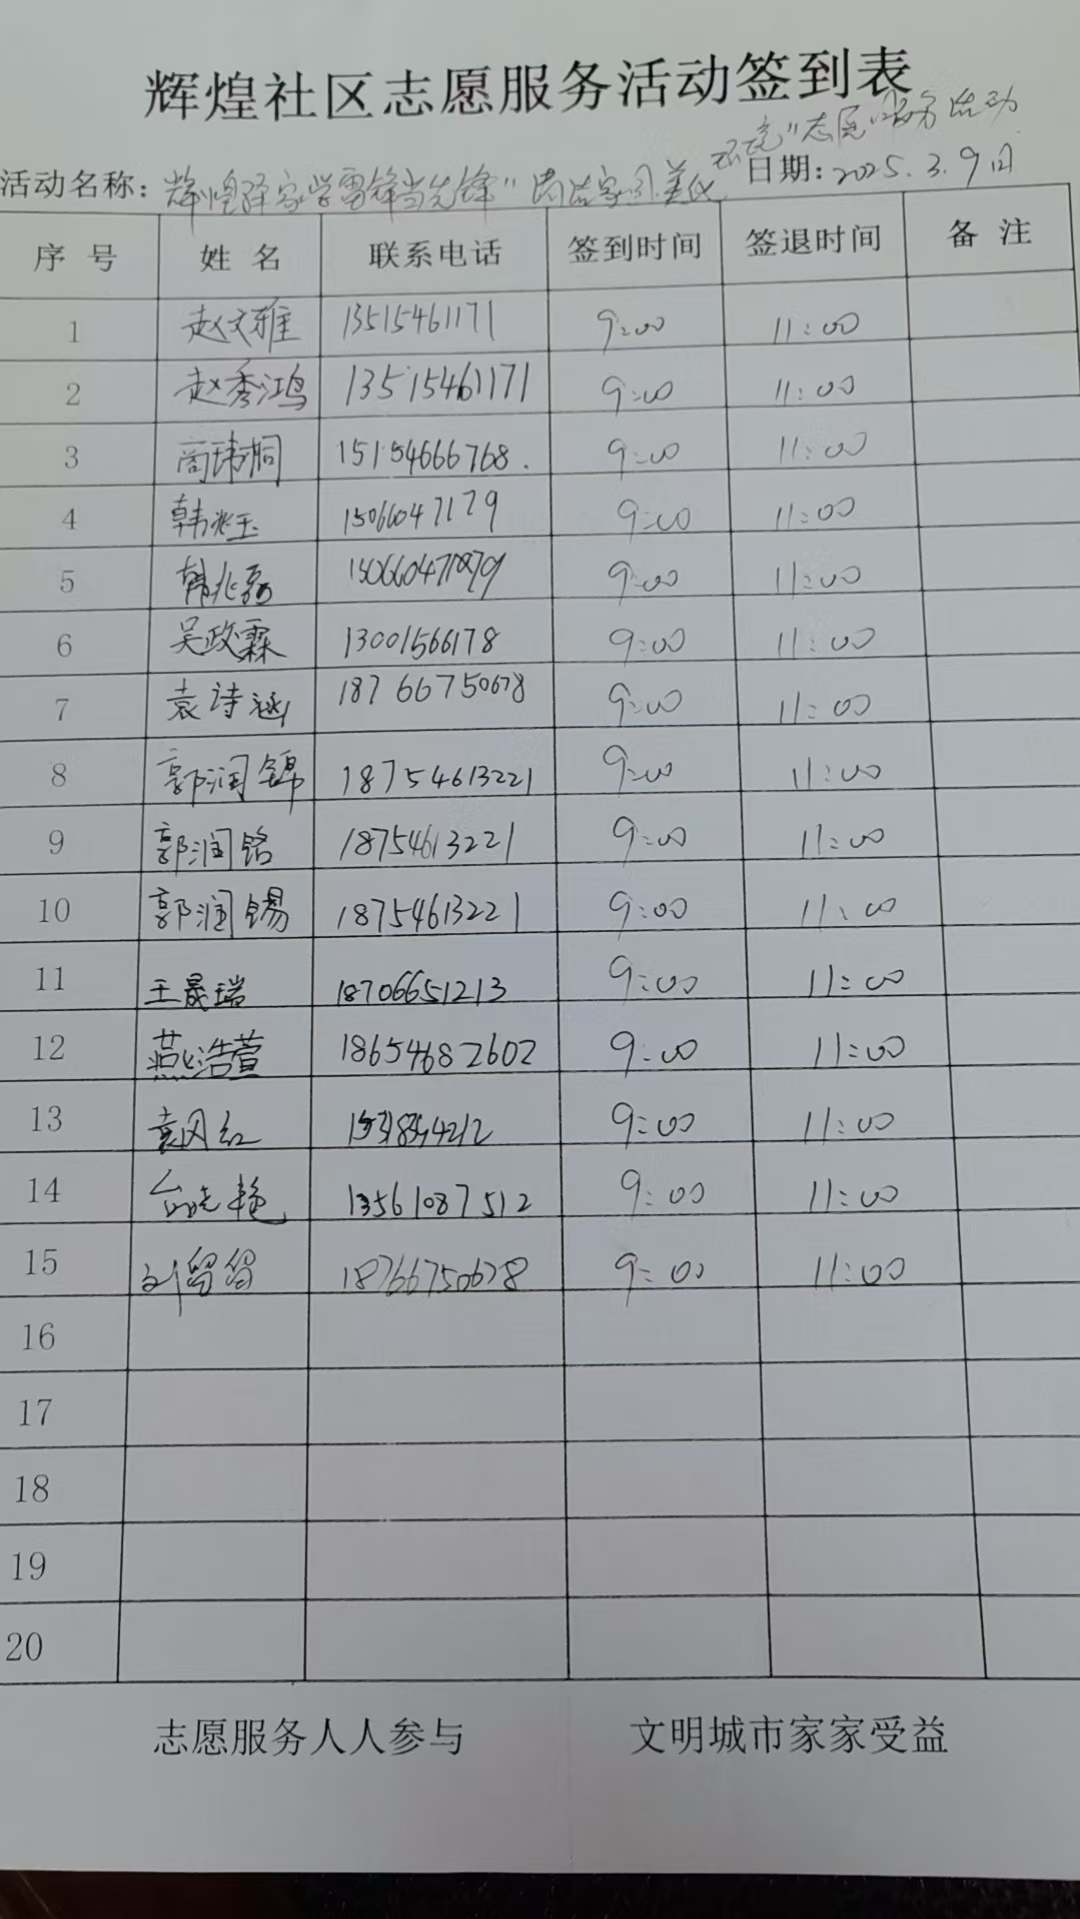 辉煌社区志愿服务活动签到表
环境"志愿"服务活动
活动名称: 辉煌 家学雷锋当先锋" 清洁家园 美化 日期: 2025.3.9日
序号 姓名 联系电话 签到时间 签退时间 备注
1 赵文雅 13515461171 9:00 11:00
2 赵秀鸿 13515461171 9:00 11:00
3 商玮桐 15154666768. 9:00 11:00
4 韩兆玉 15066047179 9:00 11:00
5 韩兆磊 9:00 11:00
6 吴政霖 13001566178 9:00 11:00
7 袁诗涵 18766750678 9:00 11:00
8 郭润锦 18754613221 9:00 11:00
9 郭润铭 18754613221 9:00 11:00
10 郭润锡 18754613221 9:00 11:00
11 王晟瑞 18706651213 9:00 11:00
12 燕浩萱 18654682602 9:00 11:00
13 袁 红 9:00 11:00
14 艳 13561087512 9:00 11:00
15 刘留留 18766750678 9:00 11:00
16
17
18
19
20
志愿服务人人参与 文明城市家家受益